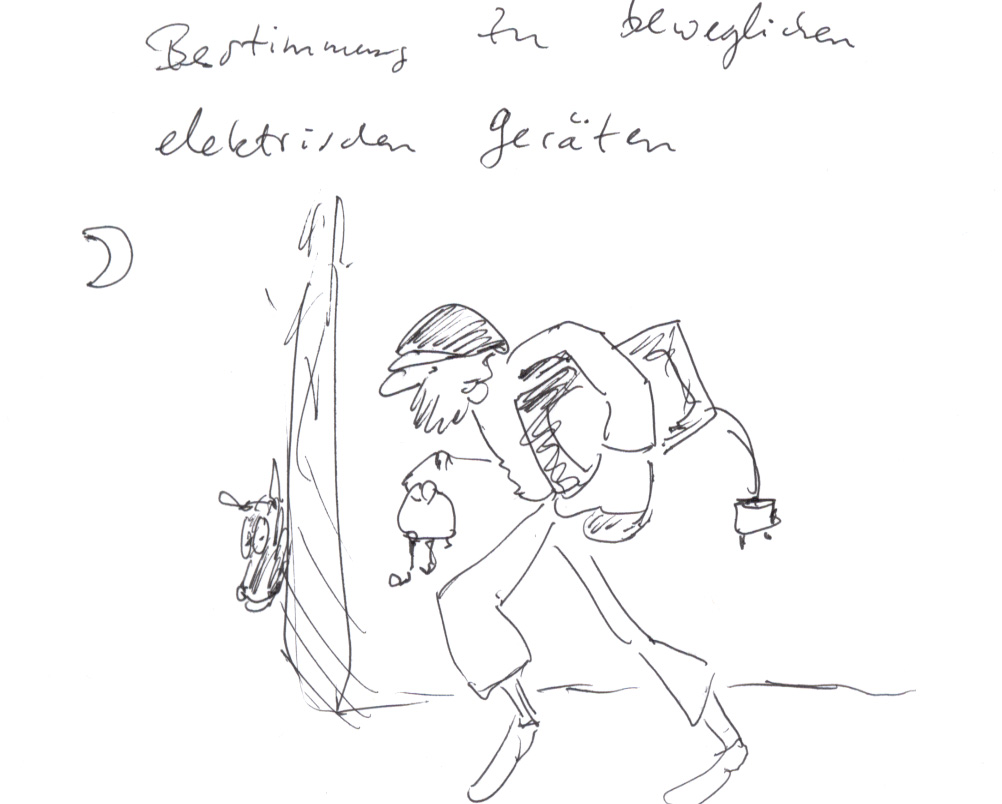 Bestimmung zu beweglichen
elektrischen Geräten